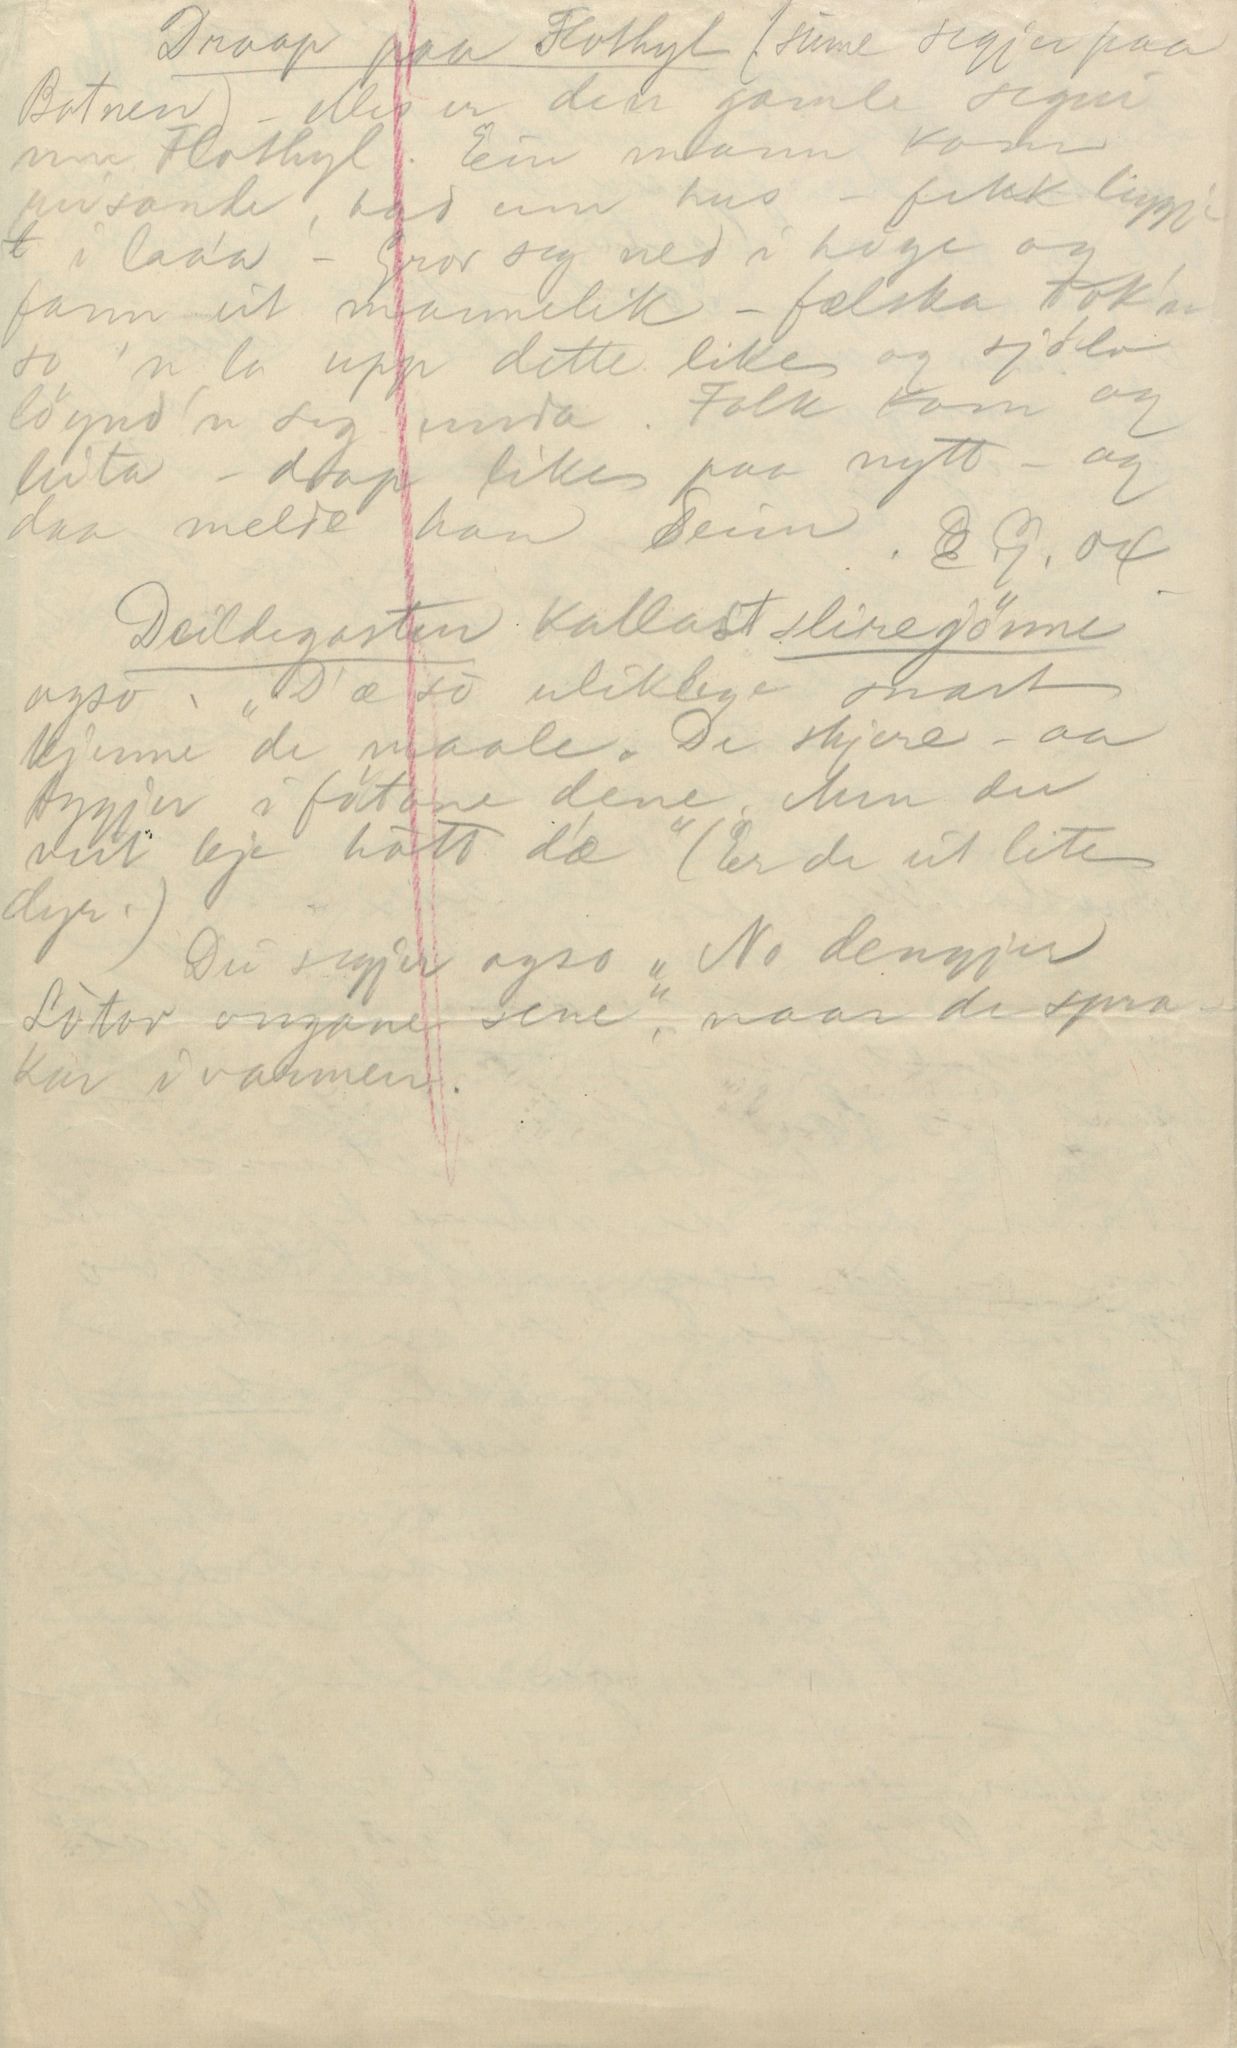 Draap paa Flothyl (sume segjer paa
Botnen) - elles er den gamle segni
um Flothyl. Ein mann kom
reisande, bad um hus - fekk liggje
t i laa'a - Grov seg ned i høye og
fann eit mannelik - fælska tok'n
so 'n la upp dette liket og sjølv
løynd'n seg unda. Folk kom og
leita - drap liket paa nytt - og
daa melde han deim. G. 04
Deildegasten kallast sliregjønne
også. "D'æ so uliklege snart
kjenne de maale. De skjere - aa
tygjer i føtane dene. Men du
veit kje hått d'æ" (Er de eit lite
dyr.)
Dei segjer også "No dengjer
Løtor ongane sene", naar de spra-
kar i varmen.